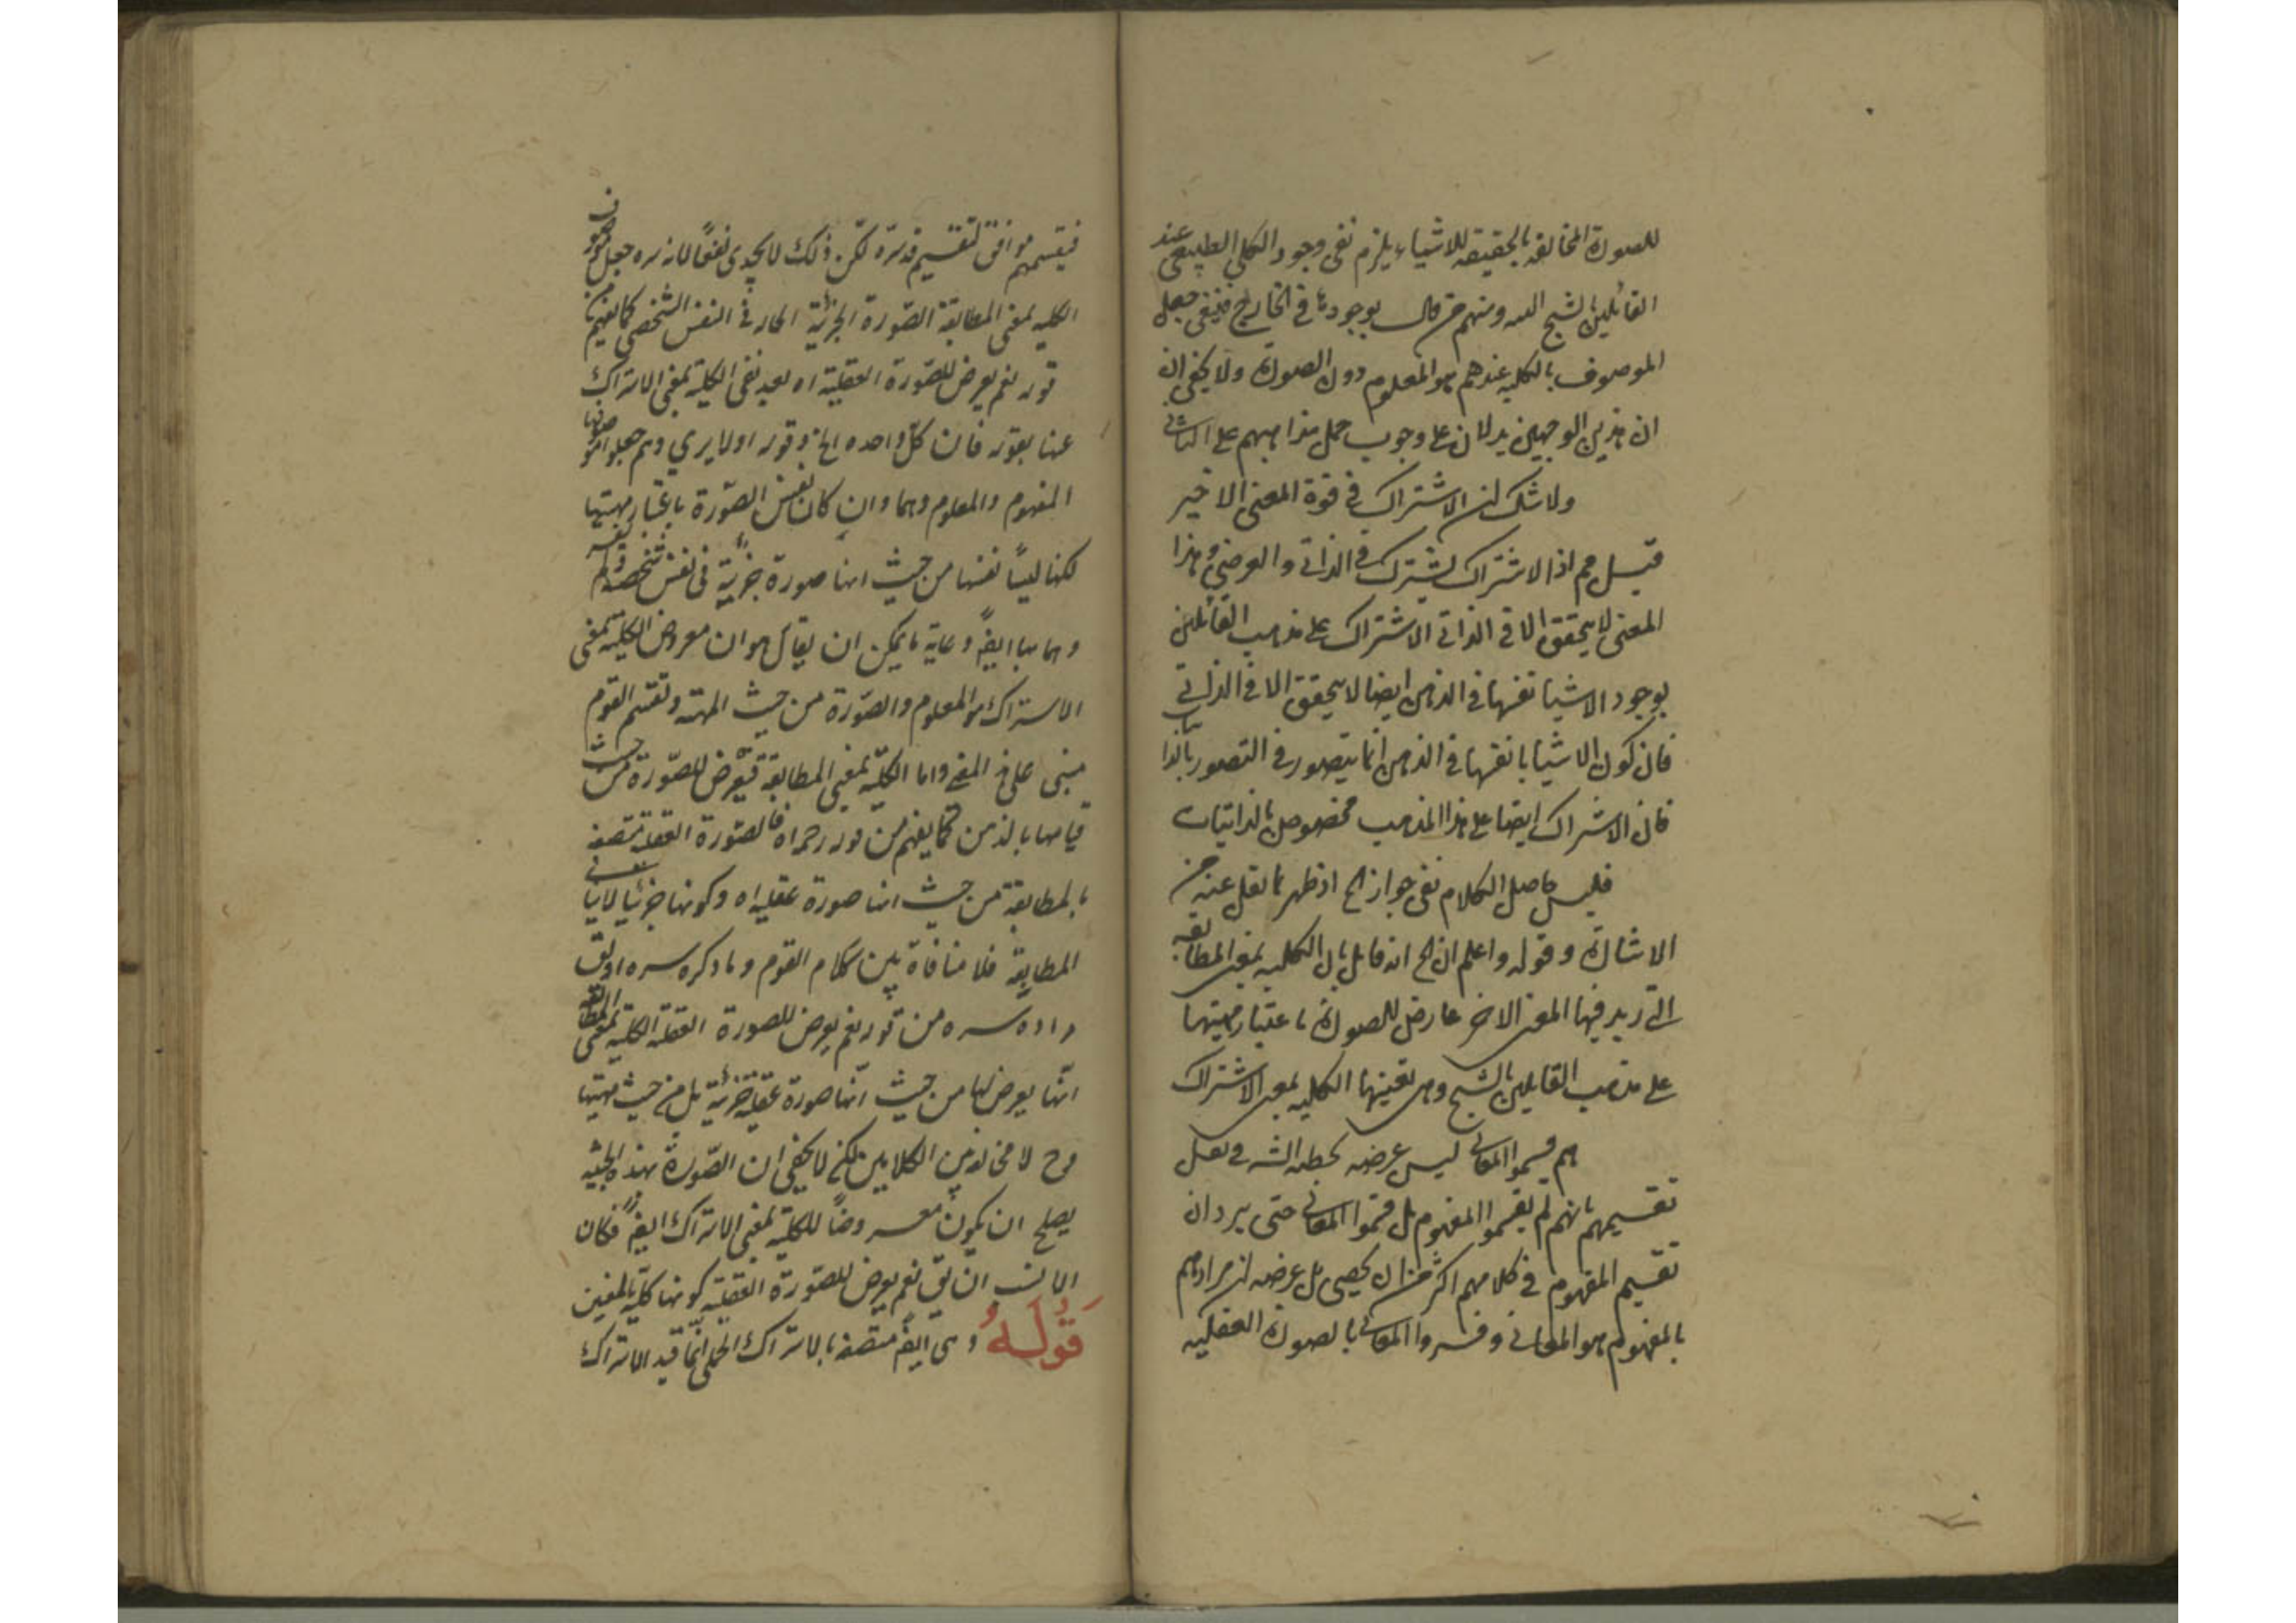 للصورة المخالفة بالحقيقة للاشياء يلزم نفى وجود الكلي الطبيعى عند
القائلين بالشبح ومنهم من قال بوجودها في الخارج فينبغى جعل
الموصوف بالكليه عندهم هو المعلوم دون الصورة ولا يخفى ان
ان هذين الوجهين يدلان على وجوب حمل مذاهبهم على الثانى
ولا شك ان الاشتراك في قوة المعنى الاخير
قيل اذ الاشتراك يشترك في الذاتى والعرضى وهذا
المعنى لا يتحقق الا في الذاتى الاشتراك على مذهب القائلين
بوجود الاشيا نفسها في الذهن ايضا لا يتحقق الا في الذاتى
فان كون الاشيا بانفسها في الذهن انما يتصور في التصور بالذاتيات
فان الاشتراك ايضا على هذا المذهب مخصوص بالذاتيات
فليس حاصل الكلام نفى جواز الخ اذ ظهر مما نقل عنه من
الاشارة وقوله واعلم ان الخ انه قايل بان الكليه بمعنى المطابقه
التى زيد فيها المعنى الاخر عارض للصورة باعتبار مهيتها
على مذهب القايلين بالشبح وهى بعينها الكليه بمعنى الاشتراك
هم قسموا المعانى ليس غرضه تخطئه فى نقل
تقسيمهم بانهم لم يقسموا المفهوم بل قسموا المعانى حتى يرد ان
تقسيم المفهوم في كلامهم اكثر من ان يحصى بل غرضه ان مرادهم
بالمفهوم هو المعانى وفسروا المعانى بالصورة العقليه
فتقسيمهم موافق لتقسيم قدسره لكن ذلك لا يجدى نفعا لانه سره جعل موصوف
الكليه بمعنى المطابقة الصورة الجزئية فى النفس الشخصى كما يفهم من
قوله نعم يعرض للصورة العقلية اه بعد نفى الكلية بمعنى الاشتراك
عنها بقوله فان كل واحده الخ وقوله اولا يرى وهم جعلوا موصوفها
المفهوم والمعلوم وهما وان كان نفس الصورة باعتبار مهيتها
لكنها ليسا نفسها من حيث انها صورة جزئية فى نفس شخصية
وغاية ما يمكن ان يقال هو ان معروض الكليه بمعنى
الاشتراك هو المعلوم والصورة من حيث المهية وتقسيم القوم
مبنى على هذا المعنى واما الكلية بمعنى المطابقة فتعرض للصورة من حيث
قيامها بالذهن كما يفهم من قوله فالصورة العقلية متصفه
بالمطابقة من حيث انها صورة عقليه اه وكونها جزئيا لا ينافى
المطابقة فلا منافاة بين كلام القوم وما ذكره سره
سره من قوله نعم يعرض للصورة العقلية الكليه بمعنى المطابقه
انها يعرض لها من حيث انها صورة عقلية جزئية بل من حيث مهيتها
وح لا مخالفة بين الكلامين لكن لا يخفى ان الصورة بهذه الحيثيه
يصلح ان يكون معروضا للكلية بمعنى الاشتراك ايضا فكان
الانسب ان يق نعم يعرض للصورة العقلية كونها كلية بالمعنيين
قوله وهى ايضا متصفة بالاشتراك الحملى انما قيد الاشتراك